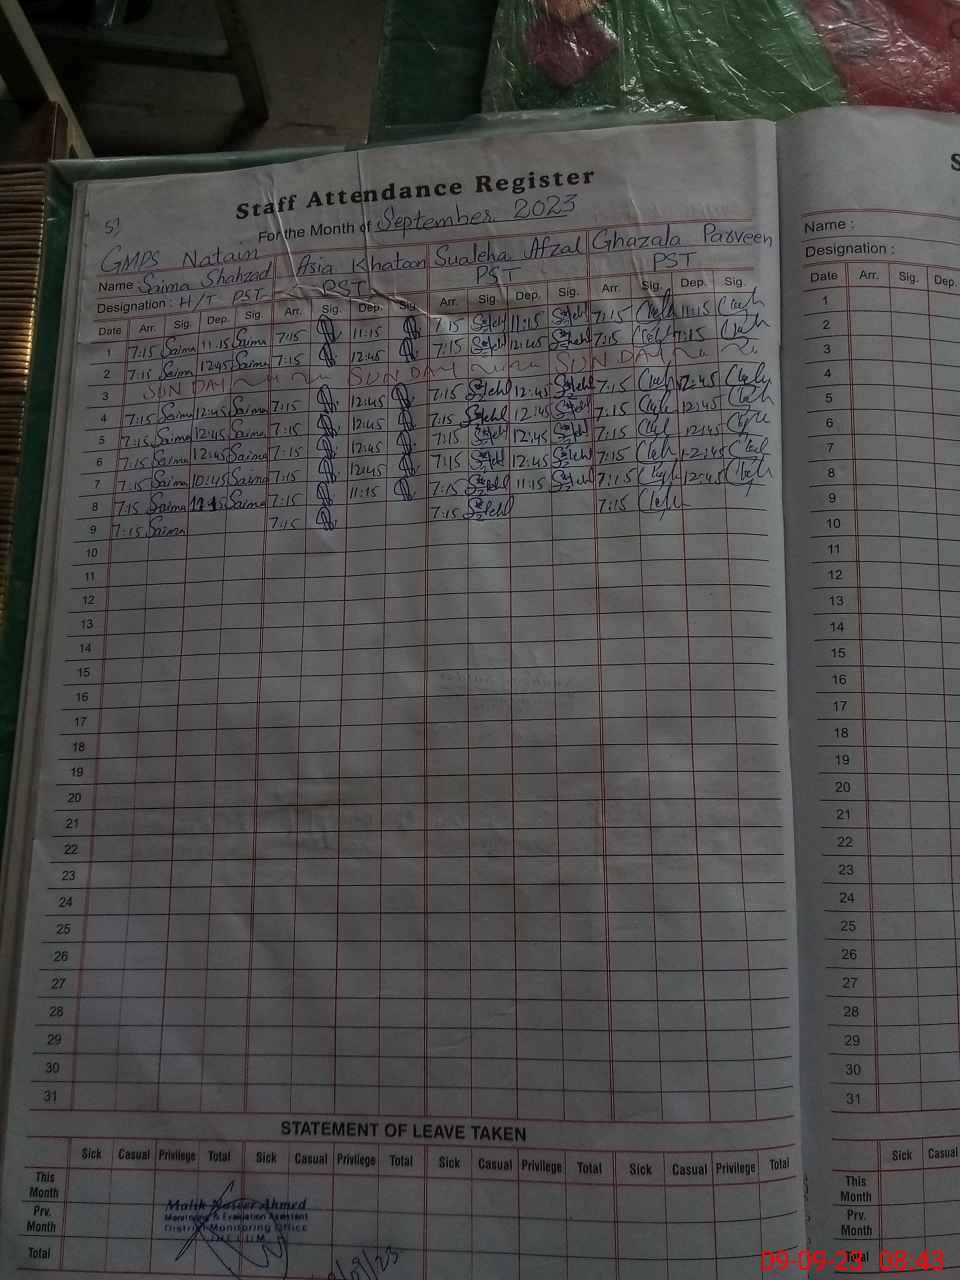 Staff Attendance Register
51
For the Month of September 2023
GMPS Natain
Name Saima Shahzad Asia Khatoon Sualeha Afzal Ghazala Parveen
Designation : H/T PST PST PST PST
Date Arr. Sig. Dep. Sig. Arr. Sig. Dep. Sig. Arr. Sig. Dep. Sig. Arr. Sig. Dep. Sig.
1 7:15 Saima 11:15 Saima 7:15 11:15 7:15 11:15 7:15 11:15
2 7:15 Saima 12:45 Saima 7:15 12:45 7:15 12:45 7:15 7:15
3 SUNDAY SUNDAY SUNDAY
4 7:15 Saima 12:45 Saima 7:15 12:45 7:15 12:45 7:15 12:45
5 7:15 Saima 12:45 Saima 7:15 12:45 7:15 12:45 7:15 12:45
6 7:15 Saima 12:45 Saima 7:15 12:45 7:15 12:45 7:15 12:45
7 7:15 Saima 10:45 Saima 7:15 12:45 7:15 12:45 7:15 12:45
8 7:15 Saima Saima 7:15 11:15 7:15 11:15 7:15 12:45
9 7:15 Saima 7:15 7:15 7:15
10
11
12
13
14
15
16
17
18
19
20
21
22
23
24
25
26
27
28
29
30
31
STATEMENT OF LEAVE TAKEN
Sick Casual Privilege Total Sick Casual Privilege Total Sick Casual Privilege Total Sick Casual Privilege Total
This Month
Prv. Month
Total
Malik Naseer Ahmed
Monitoring & Evaluation Assistant
District Monitoring Office
JHELUM
/09/23
S
Name :
Designation :
Date Arr. Sig. Dep.
1
2
3
4
5
6
7
8
9
10
11
12
13
14
15
16
17
18
19
20
21
22
23
24
25
26
27
28
29
30
31
Sick Casual
This Month
Prv. Month
Total
09-09-23 08:43